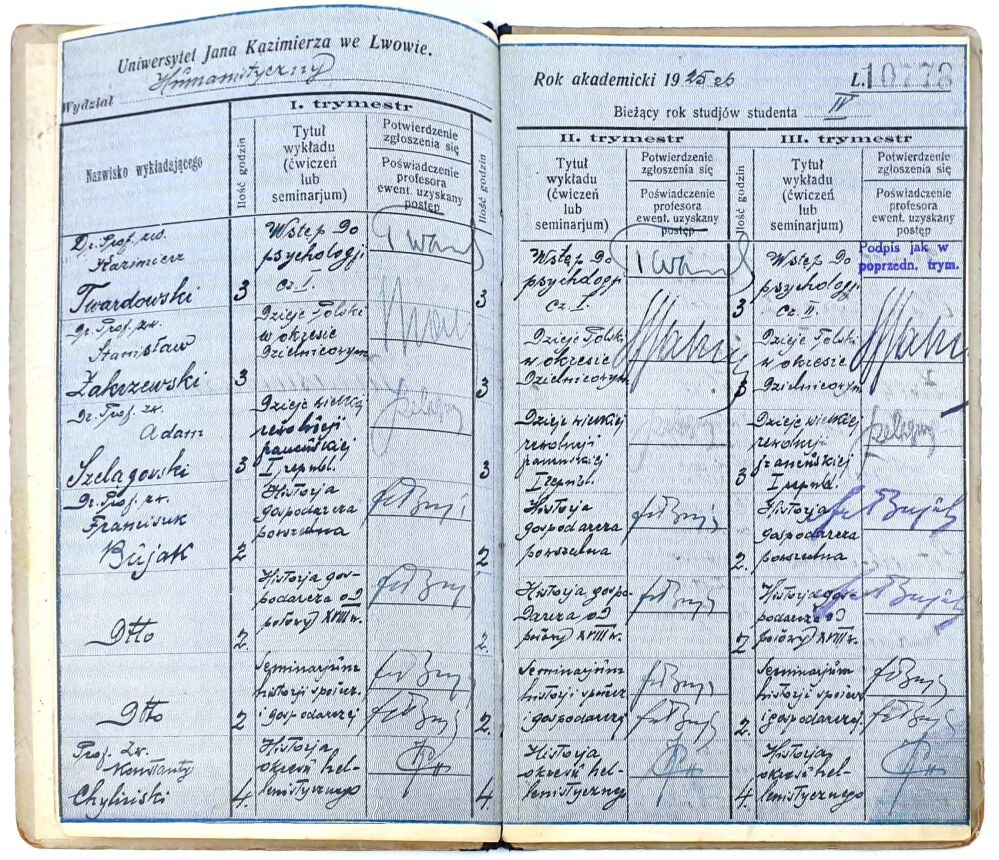 Uniwersytet Jana Kazimierza we Lwowie.
Wydział Humanistyczny
Nazwisko wykładającego
I. trymestr
Ilość godzin
Tytuł
wykładu
(ćwiczeń
lub
seminarjum)
Potwierdzenie
zgłoszenia się
Poświadczenie
profesora
ewent. uzyskany
postęp
Ilość godzin
Dr. Prof. zw.
Kazimierz
Twardowski
3
Wstęp do
psychologji
cz. I.
3
Dr. Prof. zw.
Stanisław
Zakrzewski
3
Dzieje Polski
w okresie
dzielnicowym
3
Dr. Prof. zw.
Adam
Szelągowski
3
Dzieje wielkiej
rewolucji
francuskiej
I republ.
3
Dr. Prof. zw.
Franciszek
Bujak
2
Historja
gospodarcza
powszechna
fr Bujak
2
Dtto
2.
Historja gos-
podarcza od
połowy XVIII w.
fr Bujak
2.
Dtto
2
Seminarjum
historji społecz.
i gospodarczej
fr Bujak
fr Bujak
2.
Prof. Zw.
Konstanty
Chyliński
4.
Historja
okresu hel-
lenistycznego
4
Rok akademicki 1925/26
L. 10778
Bieżący rok studjów studenta IV
II. trymestr
Tytuł
wykładu
(ćwiczeń
lub
seminarjum)
Potwierdzenie
zgłoszenia się
Poświadczenie
profesora
ewent. uzyskany
postęp
Ilość godzin
III. trymestr
Tytuł
wykładu
(ćwiczeń
lub
seminarjum)
Potwierdzenie
zgłoszenia się
Poświadczenie
profesora
ewent. uzyskany
postęp
Wstęp do
psychologji
cz. I
3
Wstęp do
psychologji
cz. II.
Podpis jak w
poprzedn. trym.
Dzieje Polski
w okresie
dzielnicowym
3
Dzieje Polski
w okresie
dzielnicowym
Dzieje wielkiej
rewolucji
francuskiej
I republ.
3
Dzieje wielkiej
rewolucji
francuskiej
I republ.
Historja
gospodarcza
powszechna
fr Bujak
2.
Historja
gospodarcza
powszechna
fr Bujak
Historja gospo-
darcza od
połowy XVIII w.
fr Bujak
2
Historja gos-
podarcza od
połowy XVIII w.
fr Bujak
Seminarjum
historji społecz.
i gospodarczej
fr Bujak
fr Bujak
2.
Seminarjum
historji społecz
i gospodarczej.
fr Bujak
fr Bujak
Historja
okresu hel-
lenistycznego
4.
Historja
okresu hel-
lenistycznego